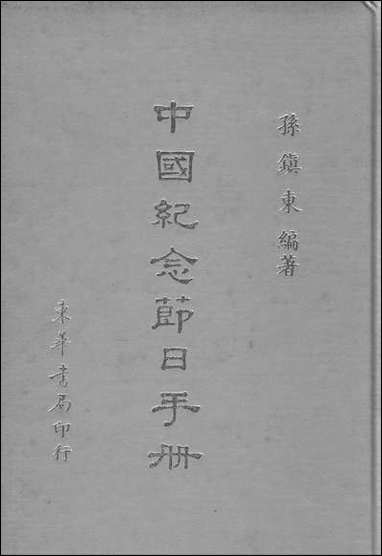 孫鎮東編著
中國紀念節日手册
東華書局印行